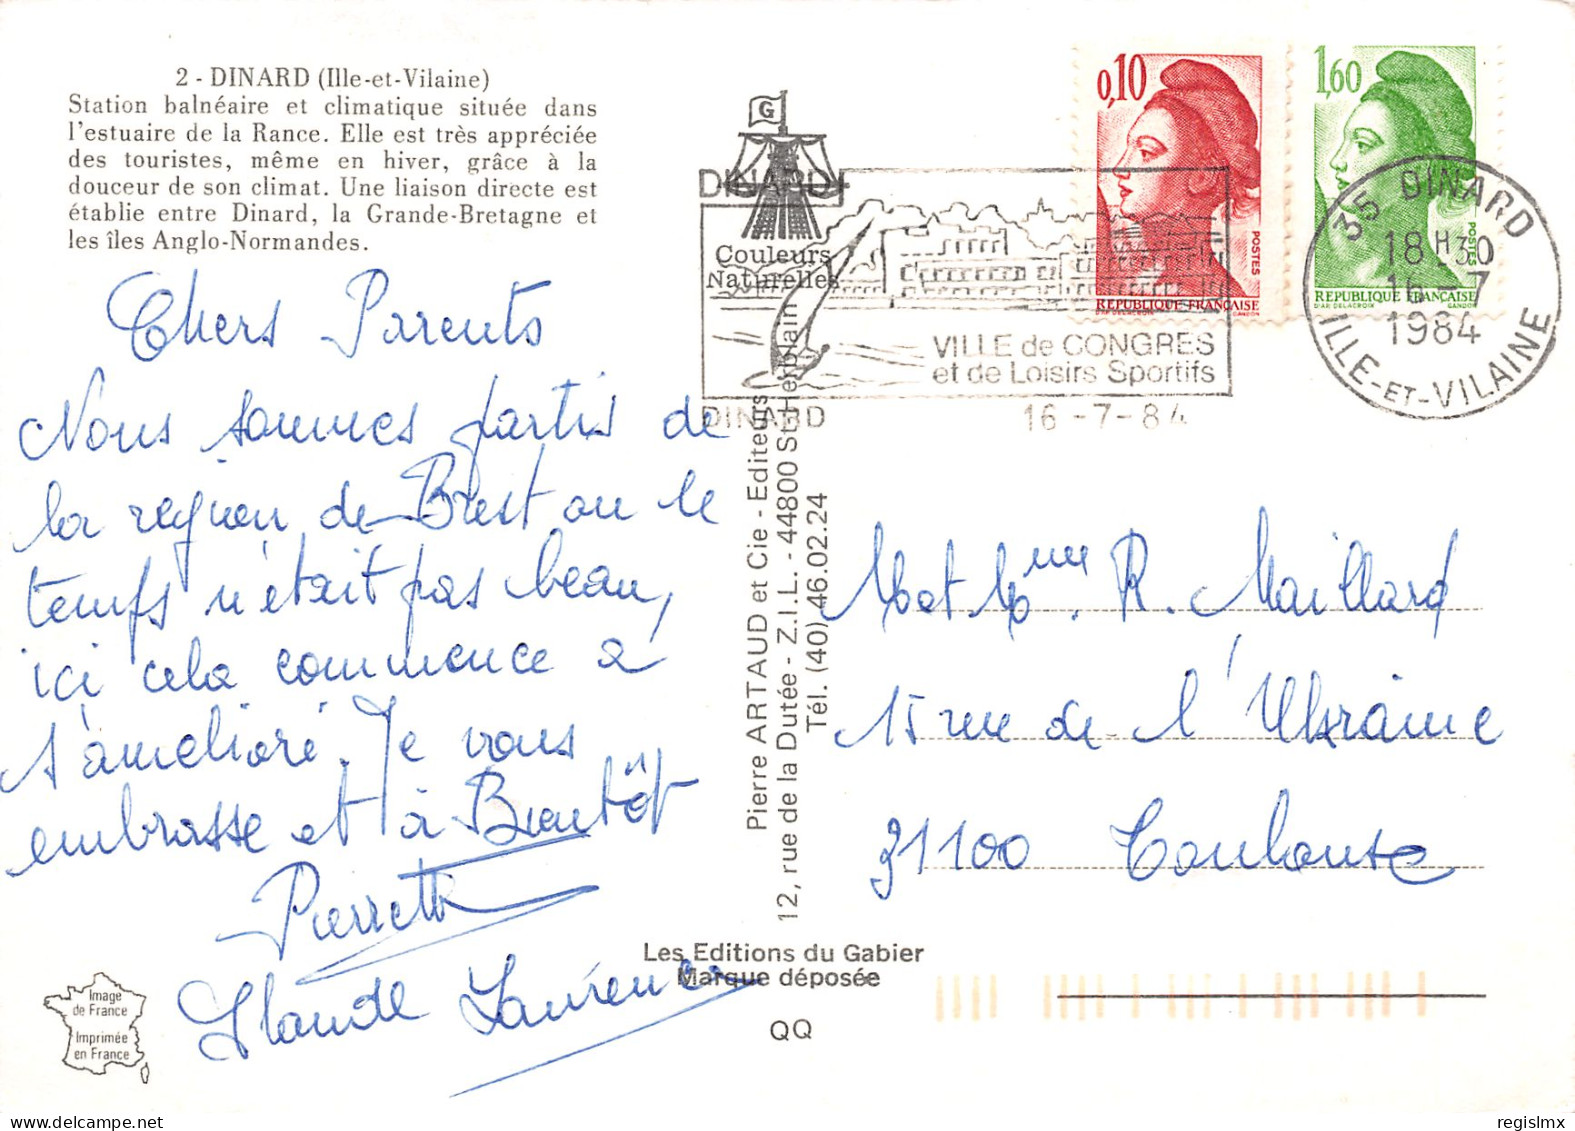 2 - DINARD (Ille-et-Vilaine)
Station balnéaire et climatique située dans
l'estuaire de la Rance. Elle est très appréciée
des touristes, même en hiver, grâce à la
douceur de son climat. Une liaison directe est
établie entre Dinard, la Grande-Bretagne et
les îles Anglo-Normandes.
Chers Parents
Nous sommes partis de
la region de Brest ou le
temps n'était pas beau,
ici cela commence à
s'améliorè. Je vous
embrasse et à Bientôt
Pierrette
Claude Laurence
Image
de France
Imprimée
en France
G
Couleurs
Naturelles
Pierre ARTAUD et Cie - Editeurs
12, rue de la Dutée - Z.I.L. - 44800 St-Herblain
Tél. (40) 46.02.24
Les Editions du Gabier
Marque déposée
QQ
0,10
POSTES
REPUBLIQUE FRANÇAISE
D'AP. DELACROIX GANDON
1,60
POSTES
REPUBLIQUE FRANÇAISE
D'AP. DELACROIX GANDON
DINARD
VILLE de CONGRES
et de Loisirs Sportifs
DINARD 16 -7- 84
35 DINARD
18H30
16 - 7
1984
ILLE-ET-VILAINE
M et Mme R. Maillard
15 rue de l'Ukraine
31100 Toulouse
regislmx